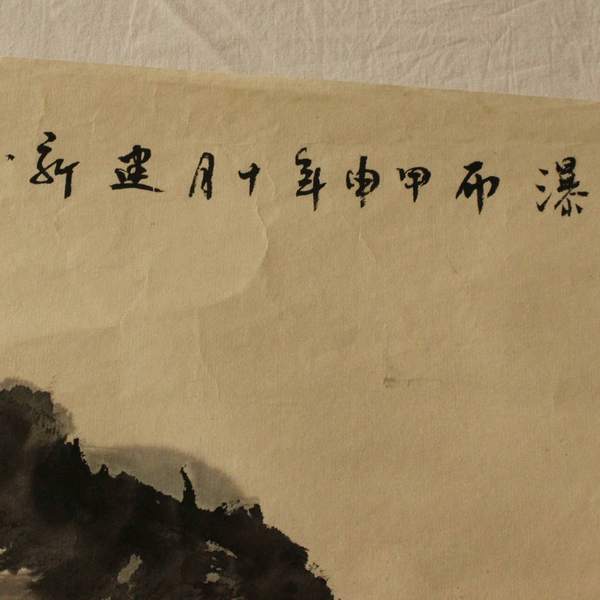 瀑布甲申年十月建新